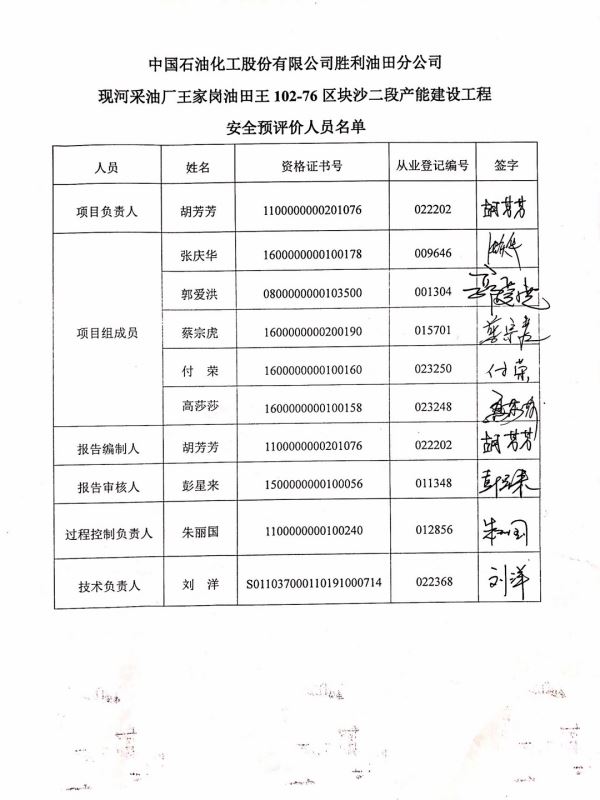 中国石油化工股份有限公司胜利油田分公司
现河采油厂王家岗油田王 102-76 区块沙二段产能建设工程
安全预评价人员名单
人员 姓名 资格证书号 从业登记编号 签字
项目负责人 胡芳芳 1100000000201076 022202 胡芳芳
张庆华 1600000000100178 009646
郭爱洪 0800000000103500 001304
项目组成员 蔡宗虎 1600000000200190 015701 蔡宗虎
付 荣 1600000000100160 023250 付荣
高莎莎 1600000000100158 023248
报告编制人 胡芳芳 1100000000201076 022202 胡芳芳
报告审核人 彭星来 1500000000100056 011348 彭星来
过程控制负责人 朱丽国 1100000000100240 012856 朱丽国
技术负责人 刘 洋 S011037000110191000714 022368 刘洋